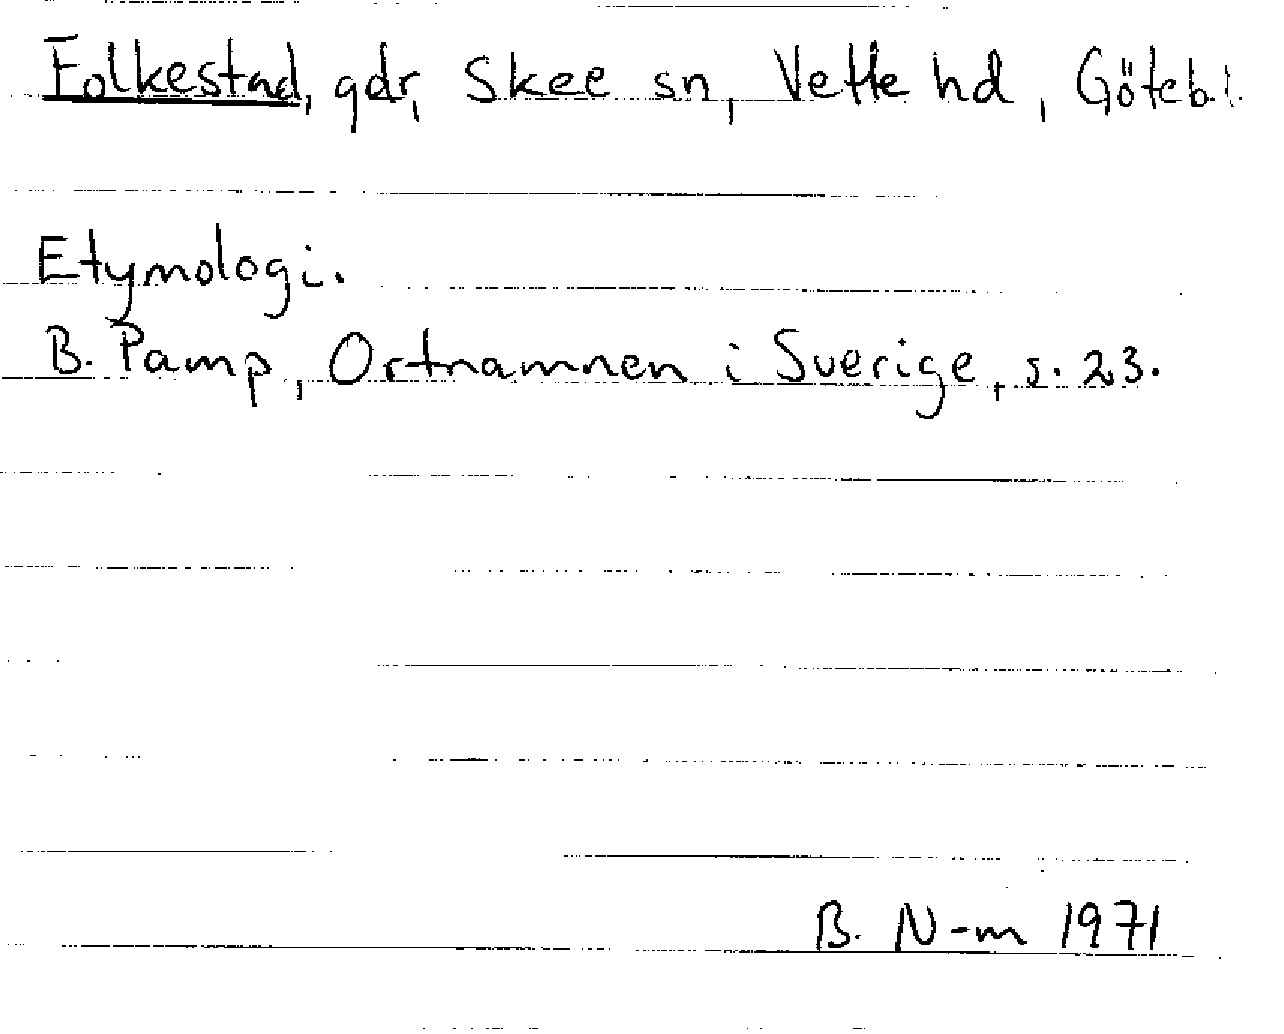 Folkestad, gdr, Skee sn, Vette hd, Göteb.l.
Etymologi.
B. Pamp, Ortnamnen i Sverige, s. 23.
B. N-m 1971